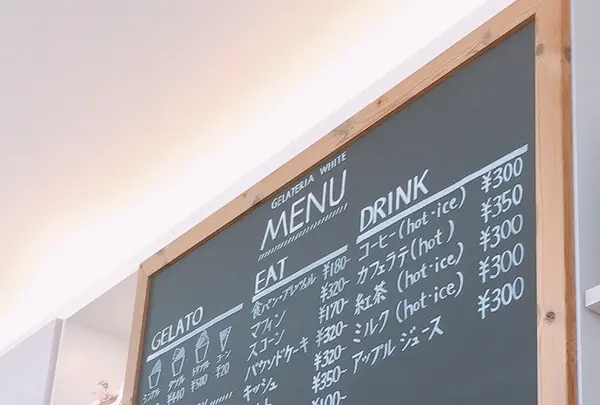 GELATERIA WHITE
MENU
GELATO
シングル ダブル トリプル コーン
¥440 ¥500 ¥20
EAT
食パン・プレッツェル ¥180-
マフィン ¥320-
スコーン ¥170-
パウンドケーキ ¥320-
キッシュ ¥320-
¥350-
DRINK
コーヒー(hot・ice) ¥300
カフェラテ(hot) ¥350
紅茶 (hot・ice) ¥300
ミルク (hot・ice) ¥300
アップルジュース ¥300